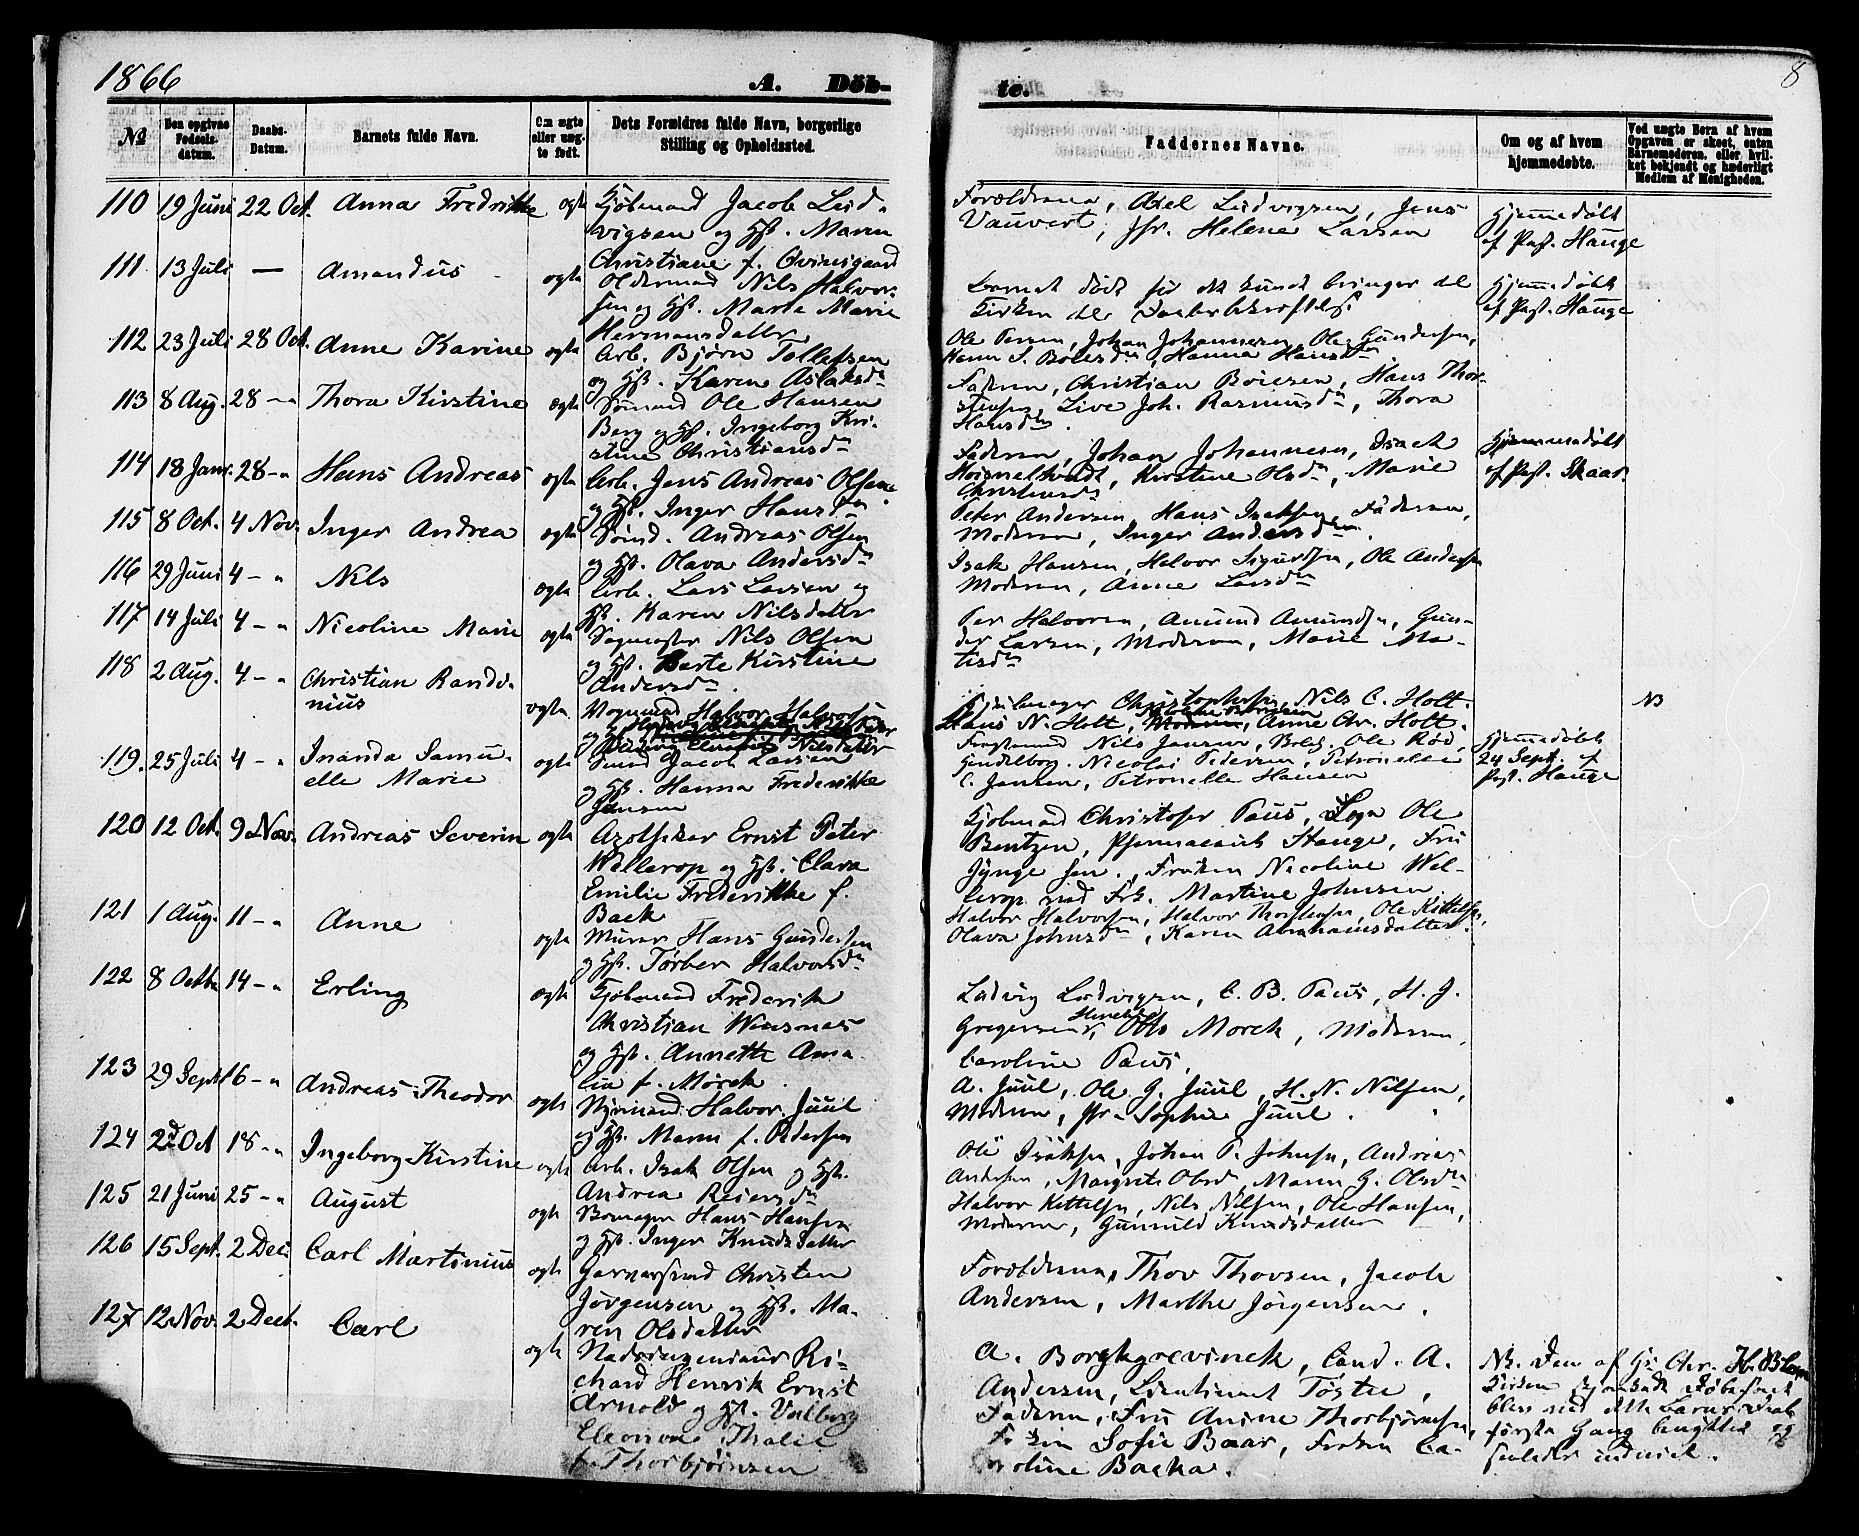 1866
A. Döb-
te.
8
№
Den opgivne Fødsels-datum.
Daabs-Datum.
Barnets fulde Navn.
Om ægte eller uæg-te født.
Dets Forældres fulde Navn, borgerlige Stilling og Opholdssted.
Faddernes Navne.
Om og af hvem hjemmedøbte.
Ved uægte Børn af hvem Opgaven er skeet, enten Barnemoderen, eller hvil-ket bekjendt og hæderligt Medlem af Menigheden.
110 19 Juni 22 Oct. Anna Fredrikke ægte Kjøbmand Jacob Lud-
vigsen og Hst. Maren
Christiane f. Qvinsgaard
Forældrene, Axel Ludvigsen, Jens
Vauvert, Jfr. Helene Larsen
Hjemmedøbt
af Past. Hauge
111 13 Juli — Amandus ægte
Oldermand Nils Halvor-
sen og Hst. Marte Marie
Hermansdatter
Barnet døde før det kunde bringes til
Kirken til Daabsbekræftelse
Hjemmedøbt
af Past. Hauge
112 23 Juli 28 Oct. Anne Karine ægte
Arb. Bjørn Tollefsen
og Hst. Karen Aslaksdr
Johan Johannesen, Ole Gundersen,
Hanna Hansdr
113 8 Aug. 28 -"- Thora Kirstine ægte
Sømand Ole Hansen
Berg og Hst. Ingeborg Kri-
stine Christiansdr
Faderen, Christian Boiesen, Hans Thor-
stensen, Live Joh. Rasmusdr, Thora
Hansdr.
114 18 Janr. 28 -"- Hans Andreas ægte
Arb. Jens Andreas Olsen
og Hst. Inger Hansdr
Faderen, Johan Johannesen, Isack
Kirstine Olsdr, Marie
Christensdr
Hjemmedøbt
af Past. Skaar.
115 8 Oct. 4 Nov. Inger Andrea ægte
Sømd. Andreas Olsen
og Hst. Olava Andersdr
Peter Andersen, Hans Isaksen, Faderen,
Moderen, Inger Andersdr.
116 29 Juni 4 -"- Nils ægte
Arb. Lars Larsen og
Hst. Karen Nilsdatter
Isak Hansen, Halvor Sigurdsen, Ole Andersen
Moderen, Anne Larsdr
117 14 Juli 4 -"- Nicoline Marie ægte
Sagmester Nils Olsen
og Hst. Berte Kirstine
Andersdr.
Per Halvorsen, Amund Amundsen, Gun-
der Larsen, Moderen, Marie Ma-
tisdr
118 2 Aug. 4 -"- Christian Randi-
nius uægte
Vognmand Halvor Halvorsen
Nilsdatter
Christophersen, Nils C. Holt
Hans N. Holt, Anne Chr. Holt.
NB
119. 25 Juli 4 -"- Inanda Samu-
elle Marie ægte
Smed Jacob Larsen
og Hst. Hanna Frederikke
Jensen
Nils Jansen, Ole Rød,
Nicolai Pedersen, Petronelle
C. Jensen, Petronelle Hansen
Hjemmedøbt
24 Sept. af
Past. Hauge
120 12 Oct. 9 Nov. Andreas Severin ægte
Apotheker Ernst Peter
Wellerop og Hst. Clara
Emilie Frederikke f.
Back
Kjøbmand Christofer Paus, Ole
Bentzen, Pharmaceut Stange, Fru
Jynge sen., Frøken Nicoline Wel-
lerop med Frk. Martine Johnsen
121 1 Aug. 11 -"- Anne ægte
Murer Hans Gundersen
og Hst. Torber Halvorsdr
Halvor Halvorsen, Halvor Thorstensen, Ole Kittelsen,
Olava Johnsdr, Karen Abrahamsdatter.
122 8 Octb. 14 -"- Erling ægte
Kjøbmand Frederik
Christian Wiesnæs
og Hst. Annette Ama-
lia f. Mørch.
Ludvig Ludvigsen, C. B. Paus, H. J.
Gregersen, Otto Morch, Moderen,
Caroline Paus,
123 29 Sept 16 -"- Andreas Theodor ægte
Styrmand Halvor Juul
og Hst. Maren f. Pedersen
A. Juul, Ole G. Juul, H. N. Nilsen,
Moderen, Jfr. Sophie Juul.
124 22 Oct 18 -"- Ingeborg Kirstine ægte
Arb. Isak Olsen og Hst.
Andrea Reiersdr
Ole Isaksen, Johan P. Johnsen, Andreas
Andersen, Margrete Olsdr, Maren G. Olsdr
125 21 Juni 25 -"- August ægte
Hans Hansen
og Hst. Inger Knudsdatter
Halvor Kittelsen, Nils Nilsen, Ole Hansen,
Moderen, Gunnild Knudsdatter
126 15 Sept. 2 Dec. Carl Martinius ægte
Garversvend Christen
Jørgensen og Hst. Ma-
ren Olsdatter
Forældrene, Thov Thovsen, Jacob
Andersen, Marthe Jørgensen.
127 12 Nov. 2 Decb. Carl ægte
Ri-
chard Henrik Ernst
Arnold og Hst. Valborg
Eleonore Thalie
f. Thorbjørnsen
A. Borchgrevinck, Cand. A.
Andersen, Lieutenant
Faderen, Fru Anine Thorbjørnsen,
Frøken Sofie Baar, Frøken Ca-
roline Backa.
NB. Den af Hr. Chr. H. Blom
Kirken skjænkede Døbefont
blev ved dette Barns Daab
første Gang benyttet og
saaledes indviet.